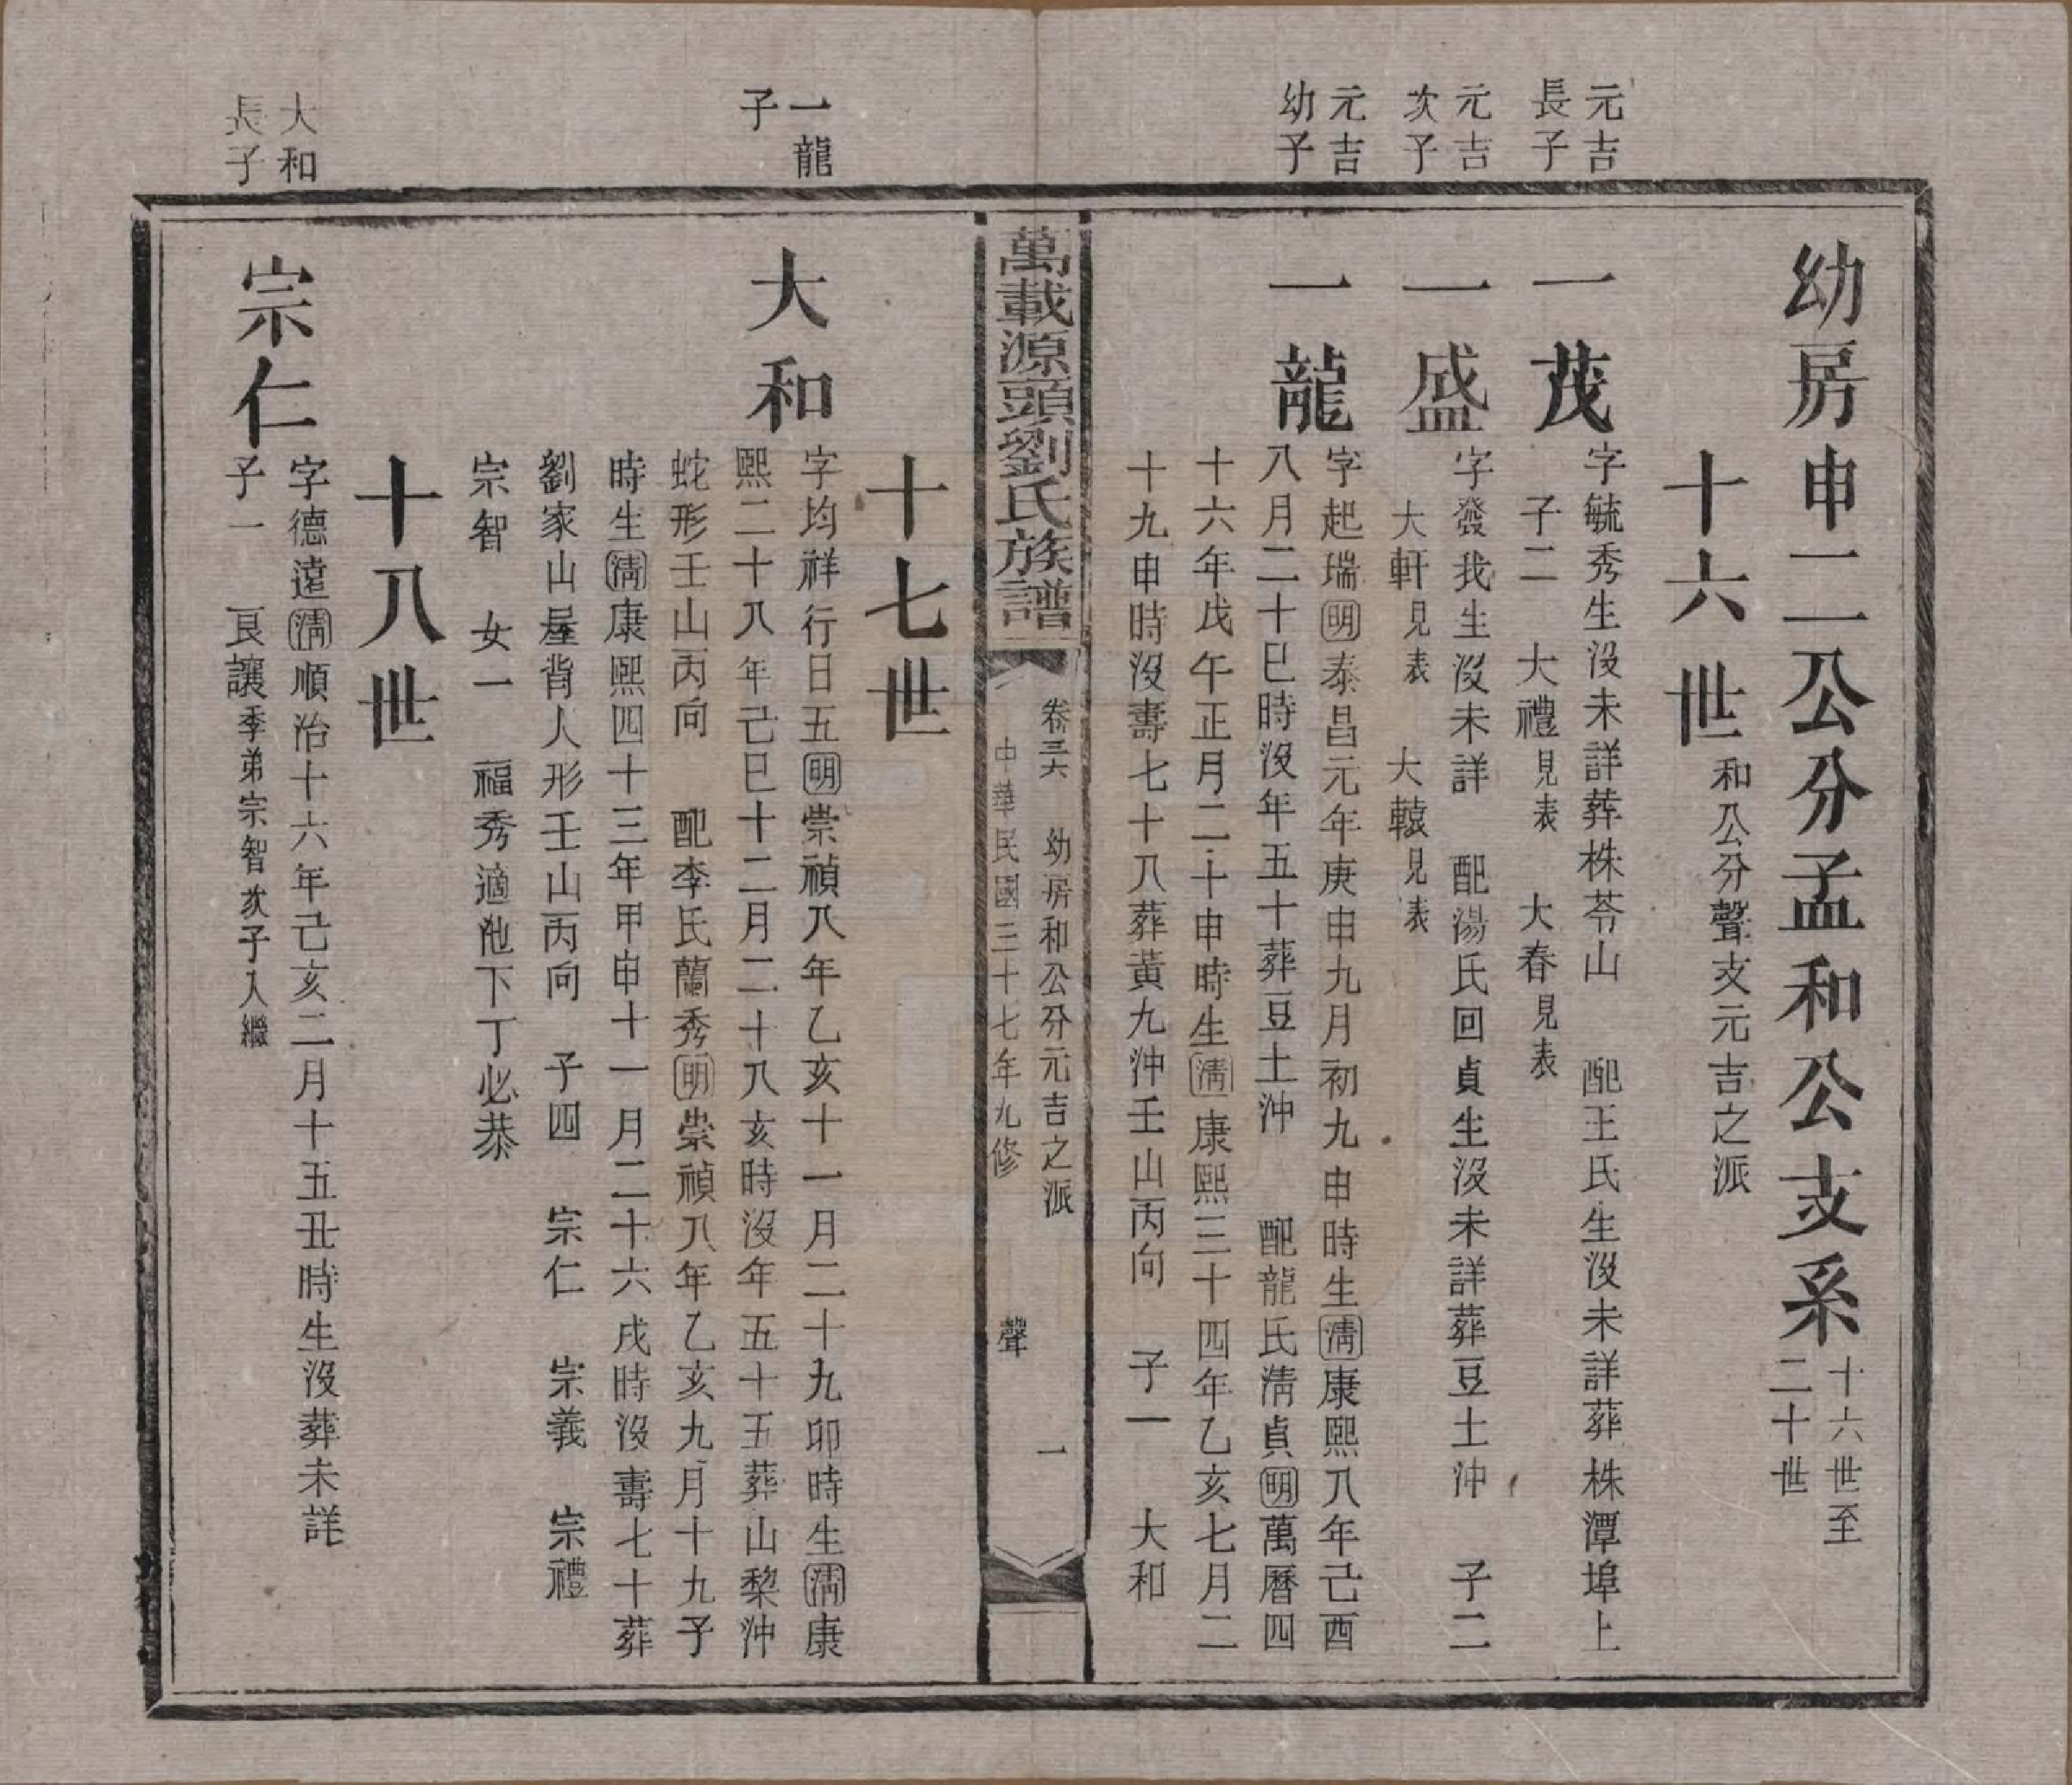 幼房申二公分孟和公支系十六世至二十世
十六世和公分聲支元吉之派
元吉長子
一茂字毓秀生沒未詳葬株苓山　配王氏生沒未詳葬株潭埠上
子二　大禮見表　大春見表
元吉次子
一盛字發我生沒未詳　配湯氏回貞生沒未詳葬豆土沖　子二
大軒見表　大轅見表
元吉幼子
一龍字起瑞明泰昌元年庚申九月初九申時生清康熙八年己酉
八月二十巳時沒年五十葬豆土沖　配龍氏清貞明萬曆四
十六年戊午正月二十申時生清康熙三十四年乙亥七月二
十九申時沒壽七十八葬黃九沖壬山丙向　子一　大和
萬載源頭劉氏族譜
卷三六　幼房和公分元吉之派　一
中華民國三十七年九修　聲
十七世
一龍子
大和字均祥行日五明崇禎八年乙亥十一月二十九卯時生清康
熙二十八年己巳十二月二十八亥時沒年五十五葬山棃沖
蛇形壬山丙向　配李氏蘭秀明崇禎八年乙亥九月十九子
時生清康熙四十三年甲申十一月二十六戌時沒壽七十葬
劉家山屋背人形壬山丙向　子四　宗仁　宗義　宗禮
宗智　女一　福秀適陁下丁必恭
十八世
大和長子
宗仁字德遠清順治十六年己亥二月十五丑時生沒葬未詳
子一　良讓季弟宗智次子入繼